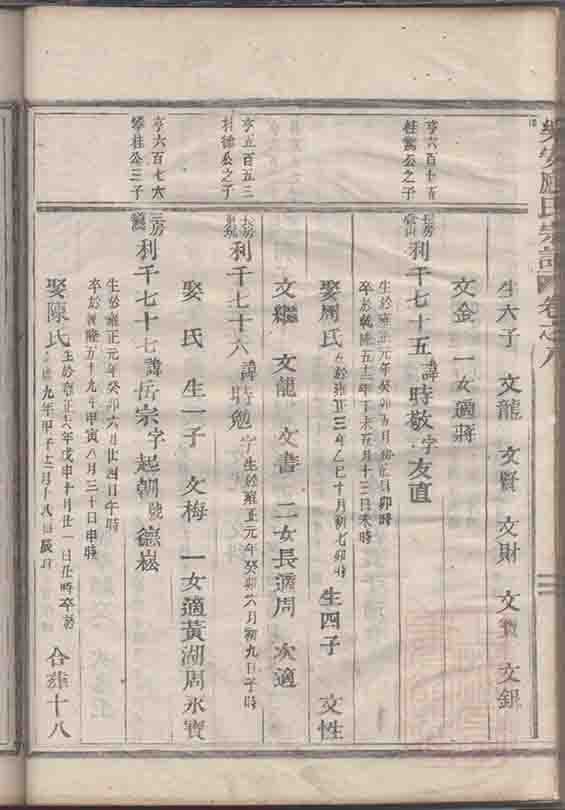 樂安應氏宗譜 卷之八
生六子 文龍 文賢 文財 文 文銀
文金 一女適蔣
亨六百十五
桂 公之子
長房
利千七十五諱時敬字友直
生於雍正元年癸卯五月 日卯時
卒於乾隆五十二年丁未五月十三日未時
娶周氏 生於雍正三年乙巳十月初七卯時 生四子 文性
文繼 文龍 文書 二女長適周 次適
亨五百五三
公之子
長房
利千七十六諱 勉字 生於雍正元年癸卯六月初九日子時
娶 氏 生一子 文梅 一女適黃湖周永寶
亨六百七六
攀桂公三子
三房
利千七十七諱岳宗字起朝號德崧
生於雍正元年癸卯六月廿四日午時
卒於乾隆五十九年甲寅八月三十日申時
娶陳氏 生於雍正六年戊申十月廿一日 時卒於
九年甲子 月十八日 時 合葬十八